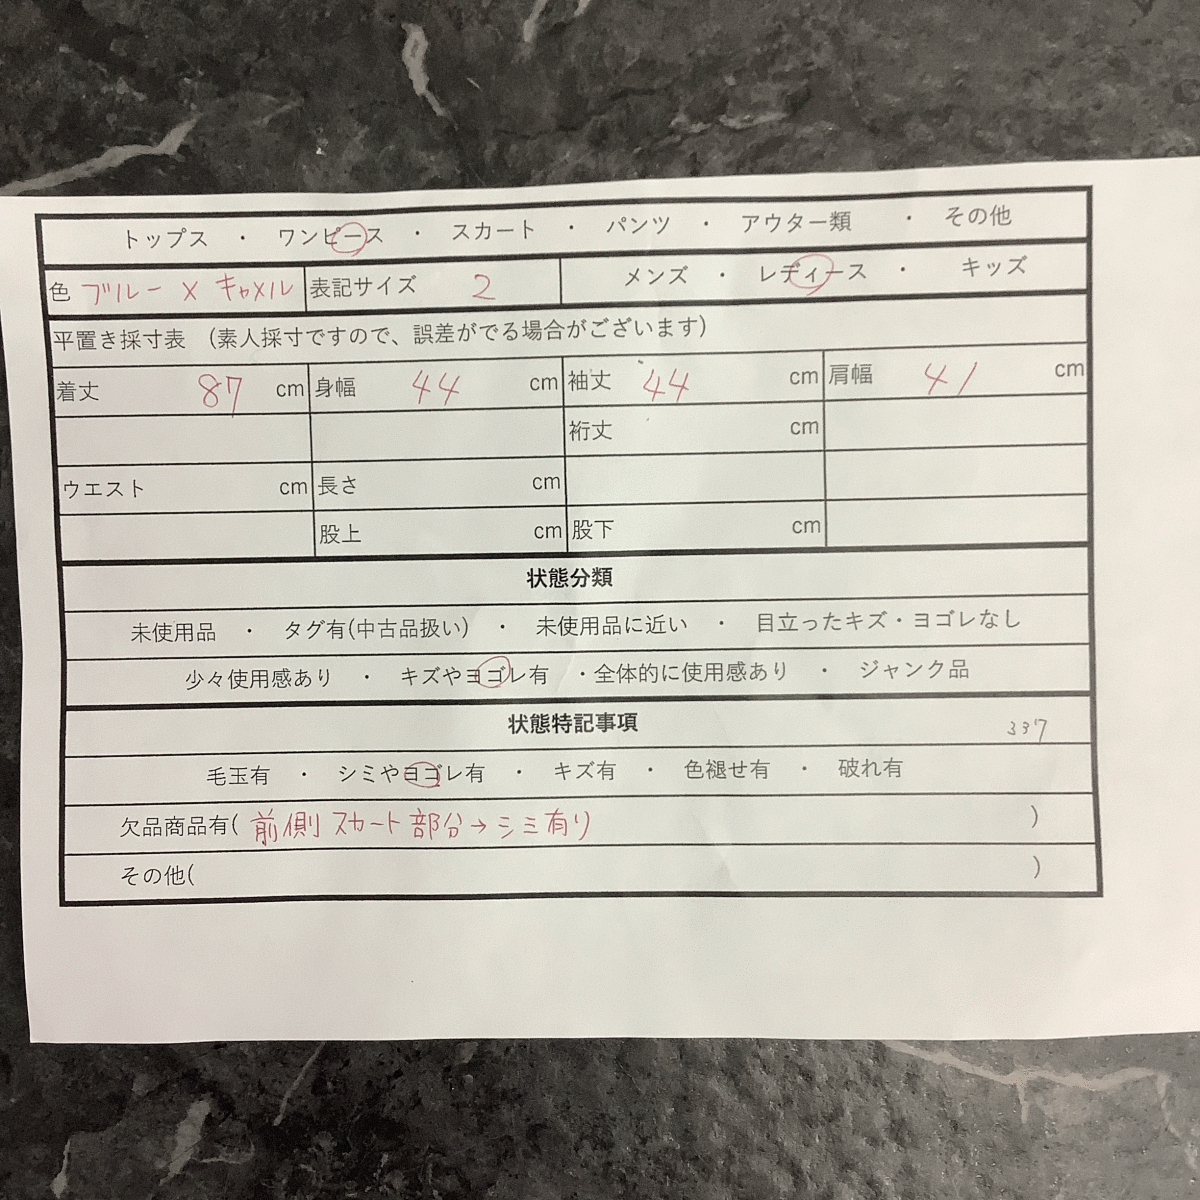 トップス ・ ワンピース ・ スカート ・ パンツ ・ アウター類 ・ その他
色 ブルー × キャメル 表記サイズ 2 メンズ ・ レディース ・ キッズ
平置き採寸表 (素人採寸ですので、誤差がでる場合がございます)
着丈 87 cm 身幅 44 cm 袖丈 44 cm 肩幅 41 cm
裄丈 cm
ウエスト cm 長さ cm
股上 cm 股下 cm
状態分類
未使用品 ・ タグ有(中古品扱い) ・ 未使用品に近い ・ 目立ったキズ・ヨゴレなし
少々使用感あり ・ キズやヨゴレ有 ・全体的に使用感あり ・ ジャンク品
状態特記事項 337
毛玉有 ・ シミやヨゴレ有 ・ キズ有 ・ 色褪せ有 ・ 破れ有
欠品商品有( 前側 スカート 部分→シミ有り )
その他( )